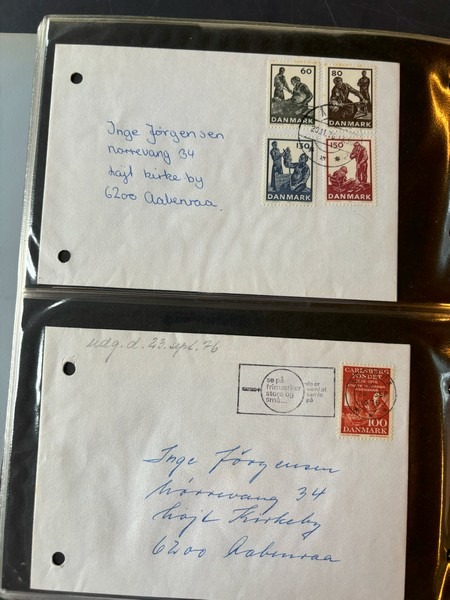 60
80
DANMARK
DANMARK
130
150
DANMARK
DANMARK
Inge Jørgensen
nørrevang 34
højt kirke by
6200 Aabenraa.
udg. d. 23. sept. 76
se på
frimærker
store og
små...
CARLSBERG
FONDET
100
DANMARK
Inge Jørgensen
Nørrevang 34
Højt Kirkeby
6200 Aabenraa